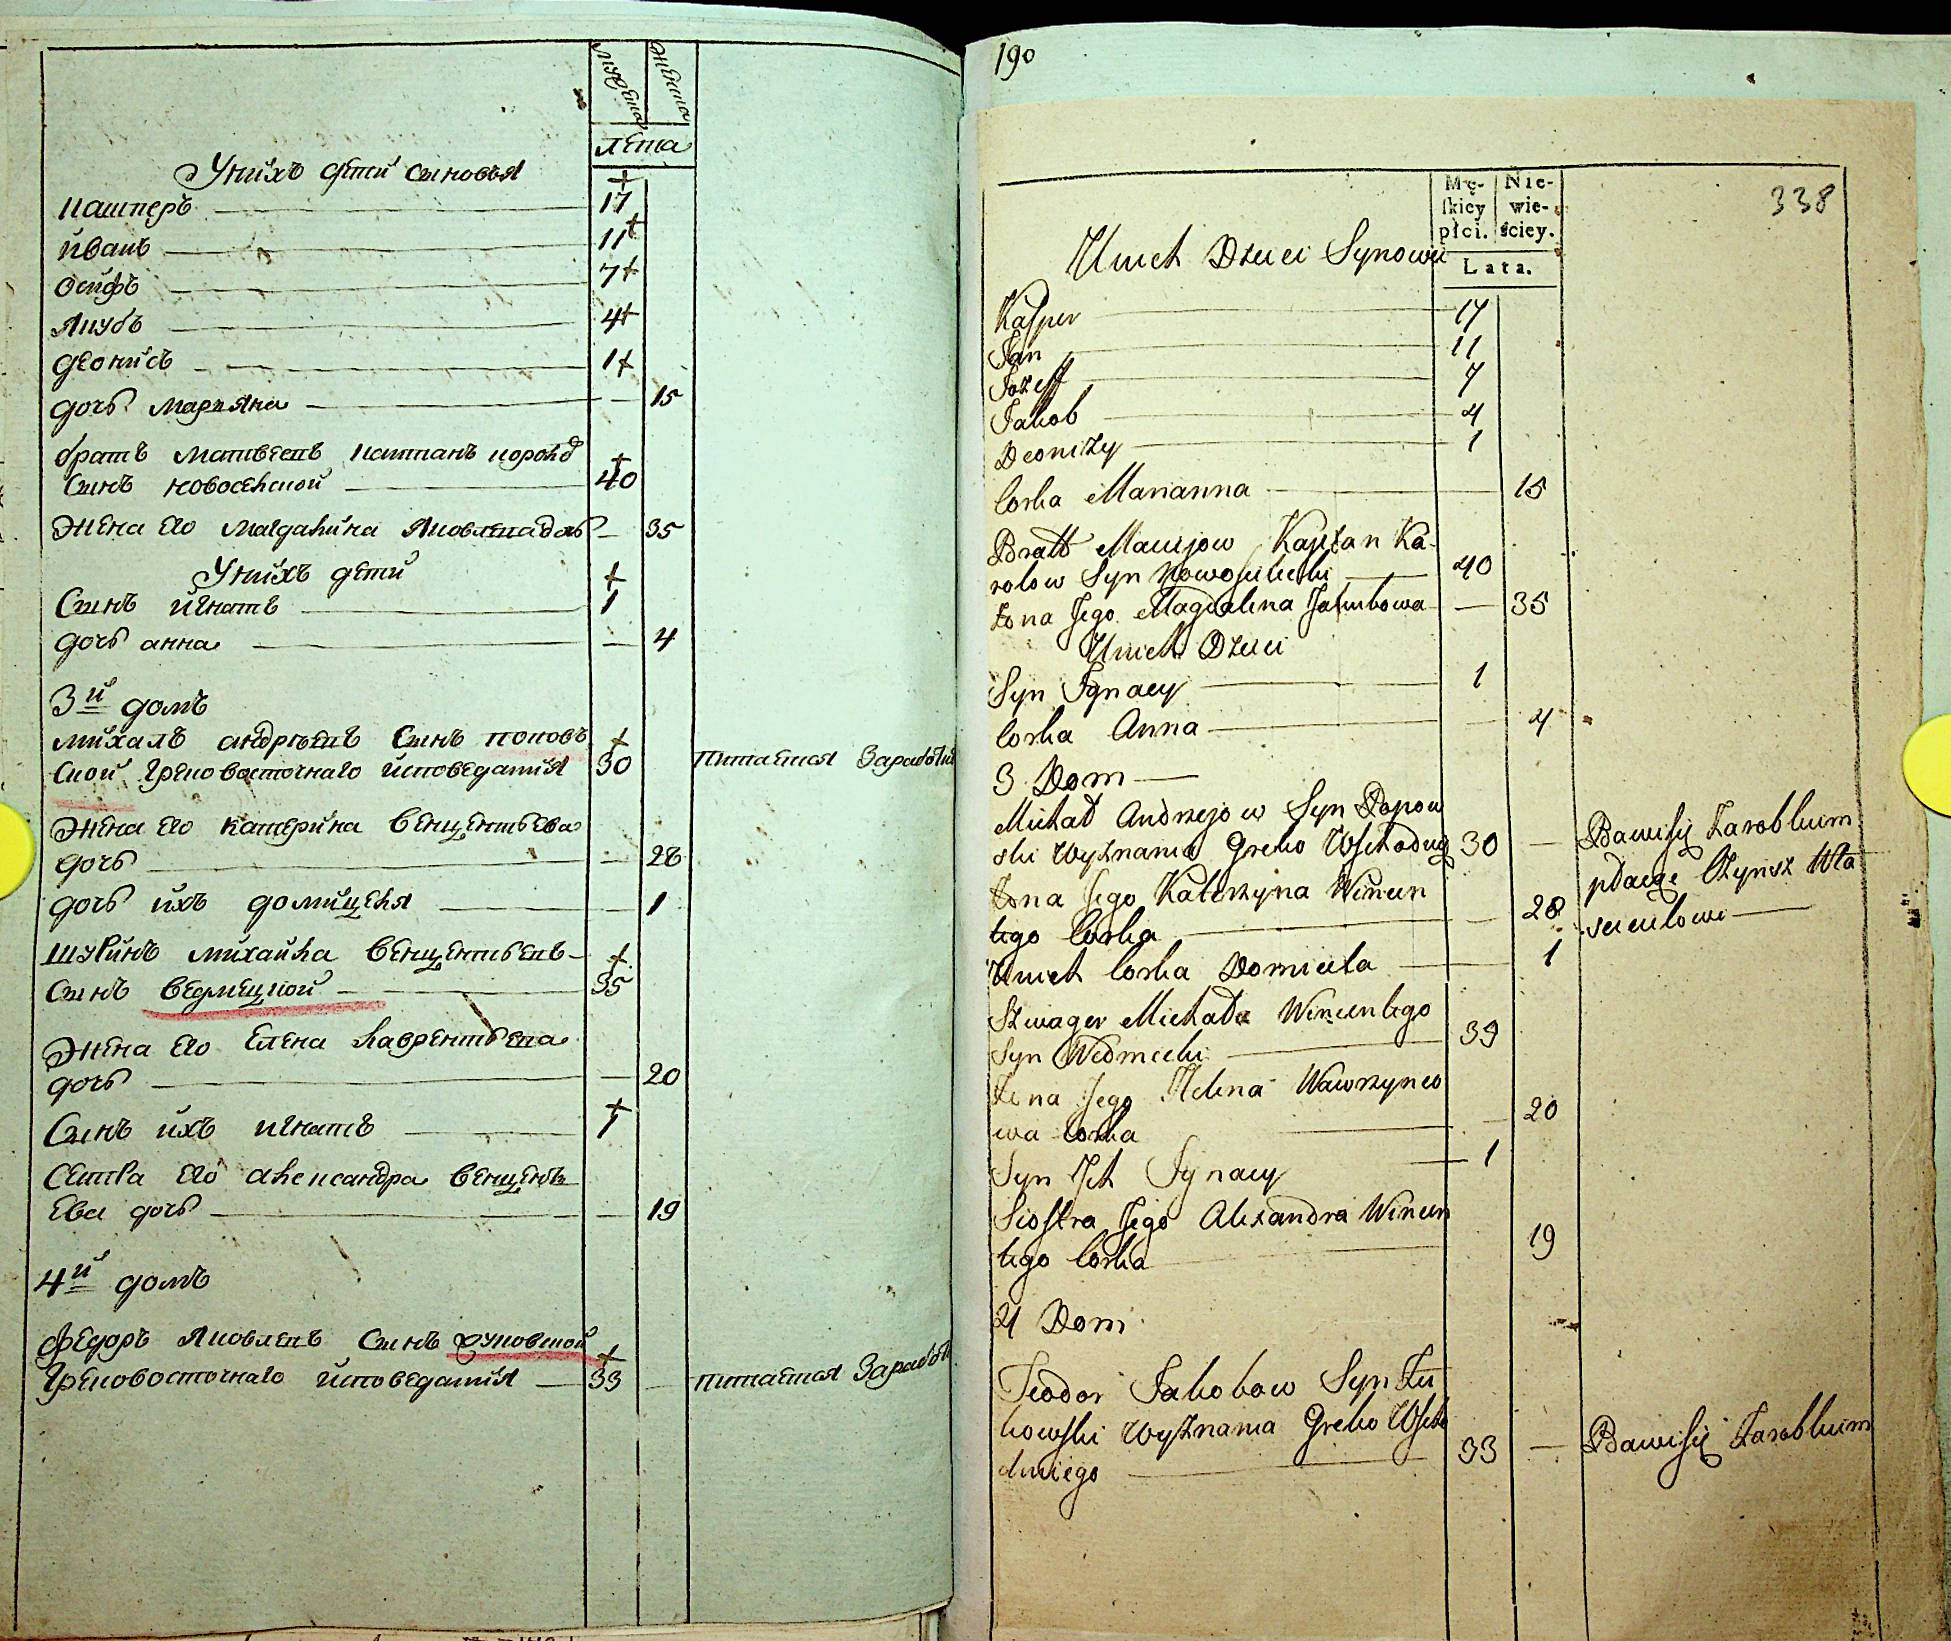 мужеска
женска
лета
Унихъ дети сыновья
Кашперъ 17
иванъ 11
осифъ 7
Якубъ 4
деонисъ 1
дочь марьяна 15
братъ матвеевъ каптанъ
Сынъ новоселской 40
жена его магдалина Яковлева дочь 35
Унихъ дети
Сынъ игнатъ 1
дочь анна 4
3й домъ
михалъ андреевъ Сынъ поповъ
ской грековосточнаго исповедания 30 питается Зарабо
жена его катерина венцентьева
дочь 28
дочь ихъ домицеля 1
шуринъ михайла венцентьевъ
Сынъ ведмецкой 35
жена его Елена лаврентьева
дочь 20
Сынъ ихъ игнатъ 1
Сестра его александра венценть
ева дочь 19
4й домъ
федоръ Яковлевъ Сынъ
грековосточнаго исповедания 33 питается Зарабо
190
338
Mę-
skiey
płci.
Nie-
wie-
ściey.
Lata.
Unich Dzieci Synowie
Kasper 17
Jan 11
Jozeff 7
Jakob 4
Deonizy 1
Corka Marianna 15
Bratt Maciejow Kapitan Ka-
rolow Syn Nowosielecki 40
Żona Jego Magdalena Jakubowa 35
Unich Dzieci
Syn Jgnacy 1
Corka Anna 4
3 Dom
Michał Andrzejow Syn Popow
ski Wyznania Greko Wschodnieg 30
Żona Jego Katerzyna Wincen
tego Corka 28
Unich Corka Domicela 1
Bawi się Zarobkiem
płacąc Czynsz Wła
scicielowi
Szwager Michała Wincentego
Syn Wedmecki 35
Żona Jego Helena Wawrzynco
wa Corka 20
Syn Jch Jgnacy 1
Siostra Jego Alexandra Wincen
tego Corka 19
4 Dom
Teodor Jakobow Syn Żu
kowski Wyznania Greko Wscho
dniego 33
Bawi się Zarobkiem